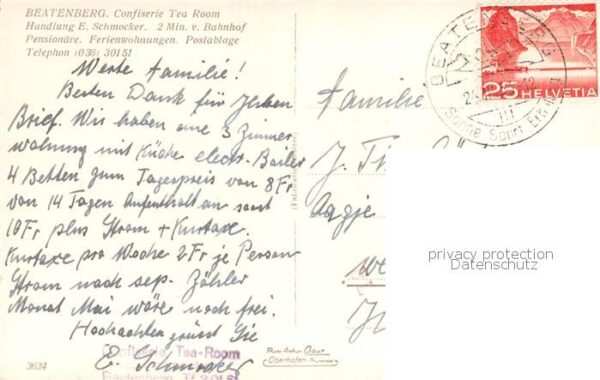 BEATENBERG. Confiserie Tea Room
Handlung E. Schmocker. 2 Min. v. Bahnhof
Pensionäre. Ferienwohnungen. Postablage
Telephon (036) 30151
Werte Familie!
Besten Dank für Ihren
Brief. Wir haben eine 3 Zimmer
wohnung mit Küche electr. Boiler
4 Betten zum Tagespreis von 8 Fr
von 14 Tagen Aufenthalt an sonst
10 Fr plus Strom + Kurtaxe.
Kurtaxe pro Woche 2 Fr je Person
Strom nach sep. Zähler
Monat Mai wäre noch frei.
Hochachtend grüsst Sie
E. Schmocker
Confiserie Tea-Room
Beatenberg
3624
BEATENBERG
Sonne Sport
25 HELVETIA
Familie
J.
Aagje
Photo Arthur Baur
Oberhofen
privacy protection
Datenschutz